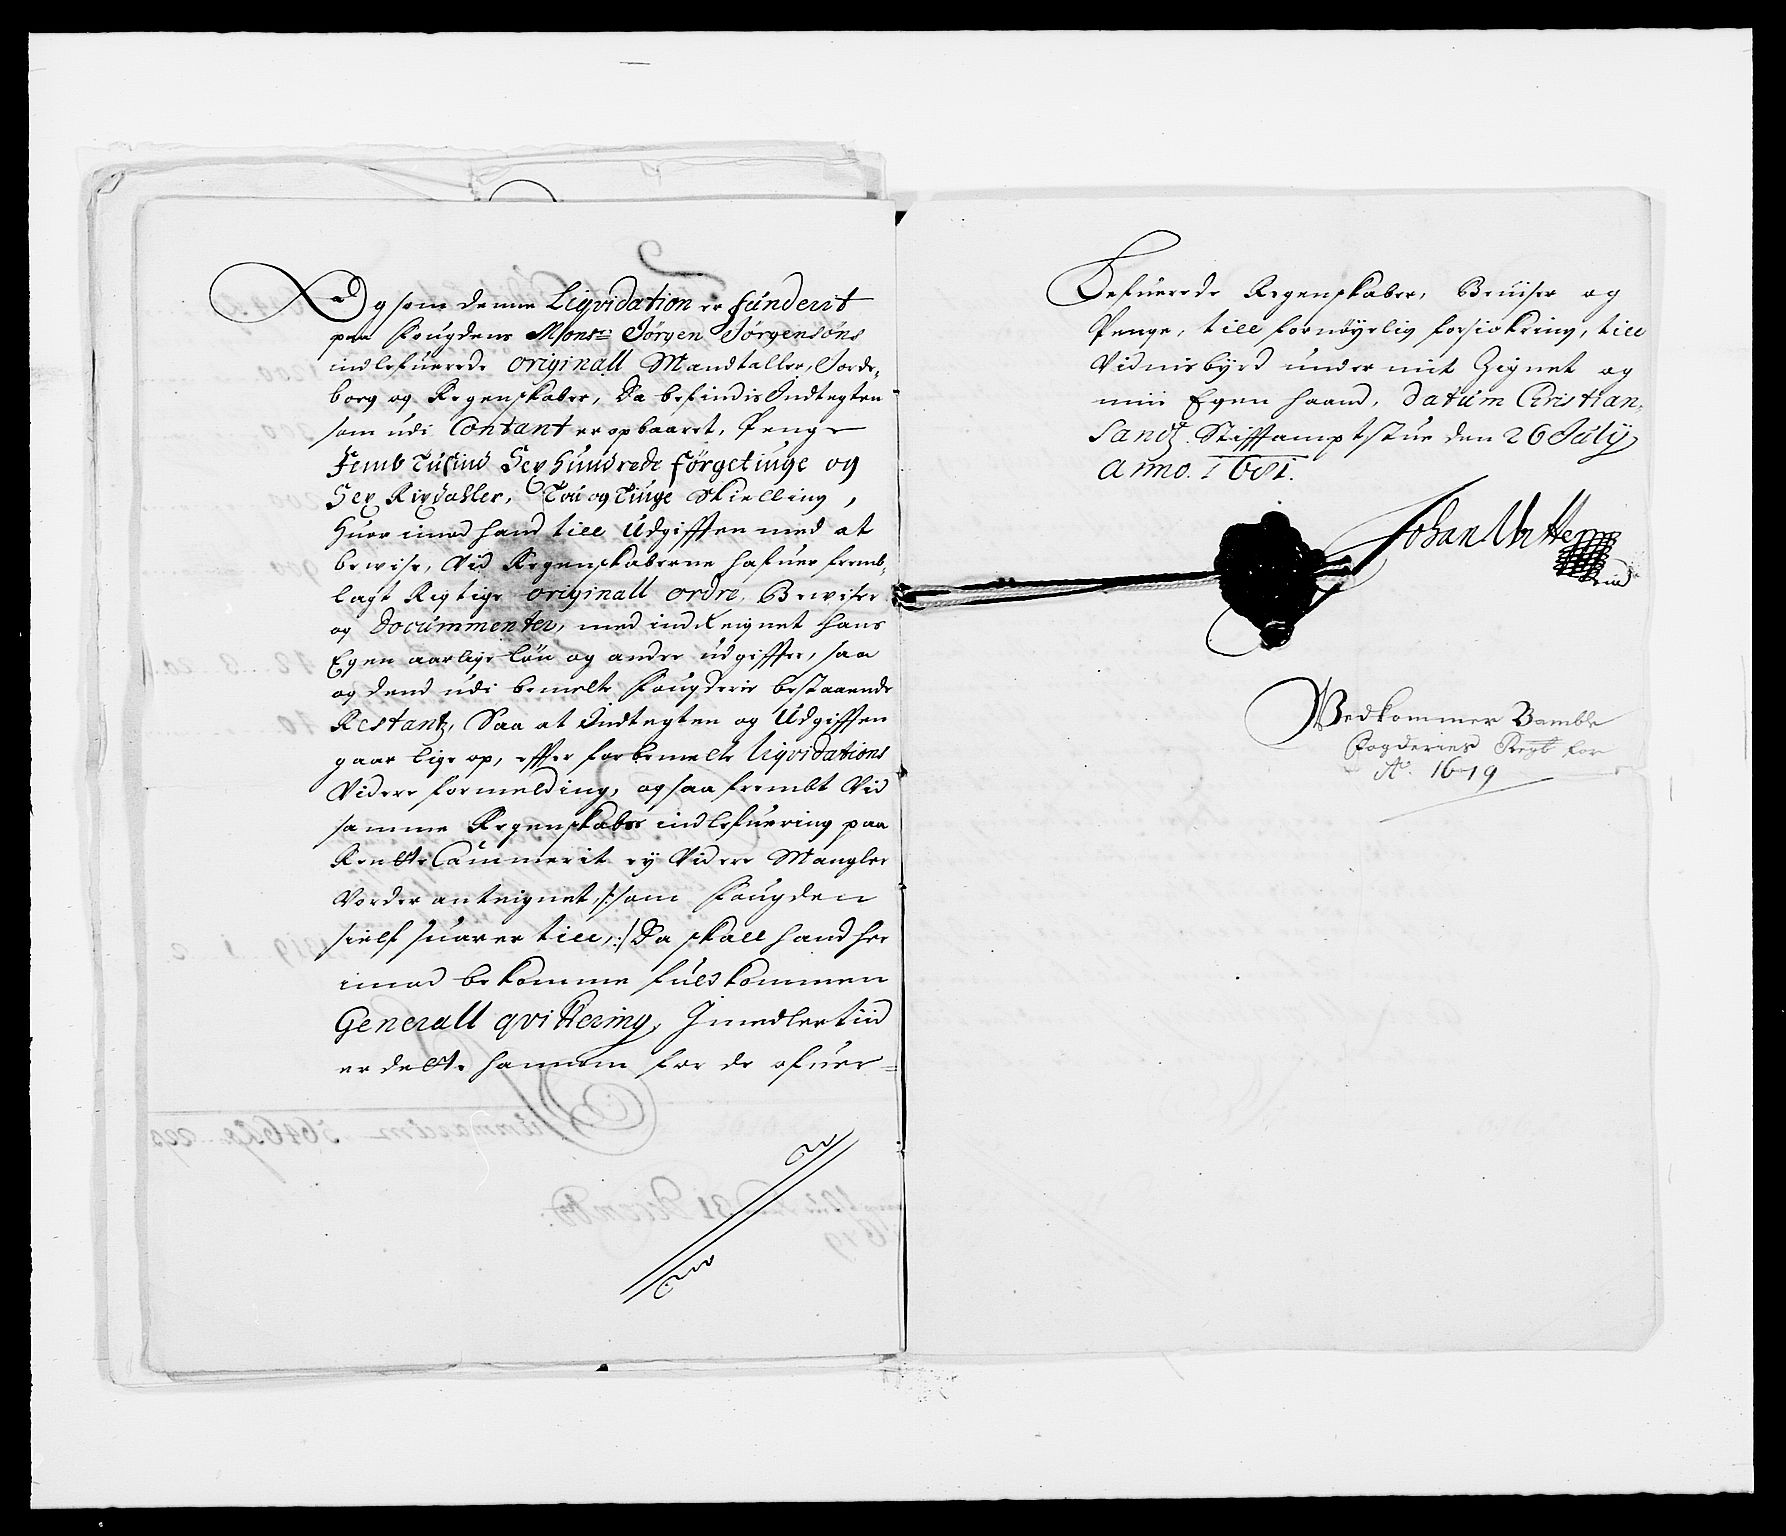 Og som denne Liqvidation er funderit
paa Fougdens Monsr: Jørgen Jørgensøns
indlefuerede originall Mandtaller, Jorde-
borg og Regenskaber, Da befindis Indtegten
som udi Contant er opbaaret, Penge
Femb Tusind Sex Hundrede førgetiuge og
Sex Rixdaller, Tou og Tiuge Skielling,
Huor imod hand till Udgifften med at
bewise, Vid Regenskaberne hafuer fremb-
lagt Rigtige originall ordre, Bewiser
og Docummenter, med indReignet hans
Egen aarlige Løn og andre udgiffter, saa
og dend udi bemelte Fougderie bestaaende
Restantz, Saa at Indtegten og Udgifften
gaar lige op, effter forbemelte liqvidations
Videre formelding, og saa frembt Vid
samme Regenskabers indlefuering paa
RentteCammerit ey Videre Mangler
Vorder anteignet, /:som Fougden
sielf suarer till,:/ Da skall hand her
imod bekomme fuldkommen
Generall qvittering, Imedlertiid
er dette hannem for de ofuer-
Lefuerede Regenskaber, Beuiser og
Penge, till fornøyelig forsickring, till
Vidnisbyrd under mit Zignet og
min Egen haand, Datum Christian-
Sandz Stifftamptstue den 26 July
Anno. 1681.
Johan
Vedkommer Bamble
Fogderies Regsb for
Ao. 1679